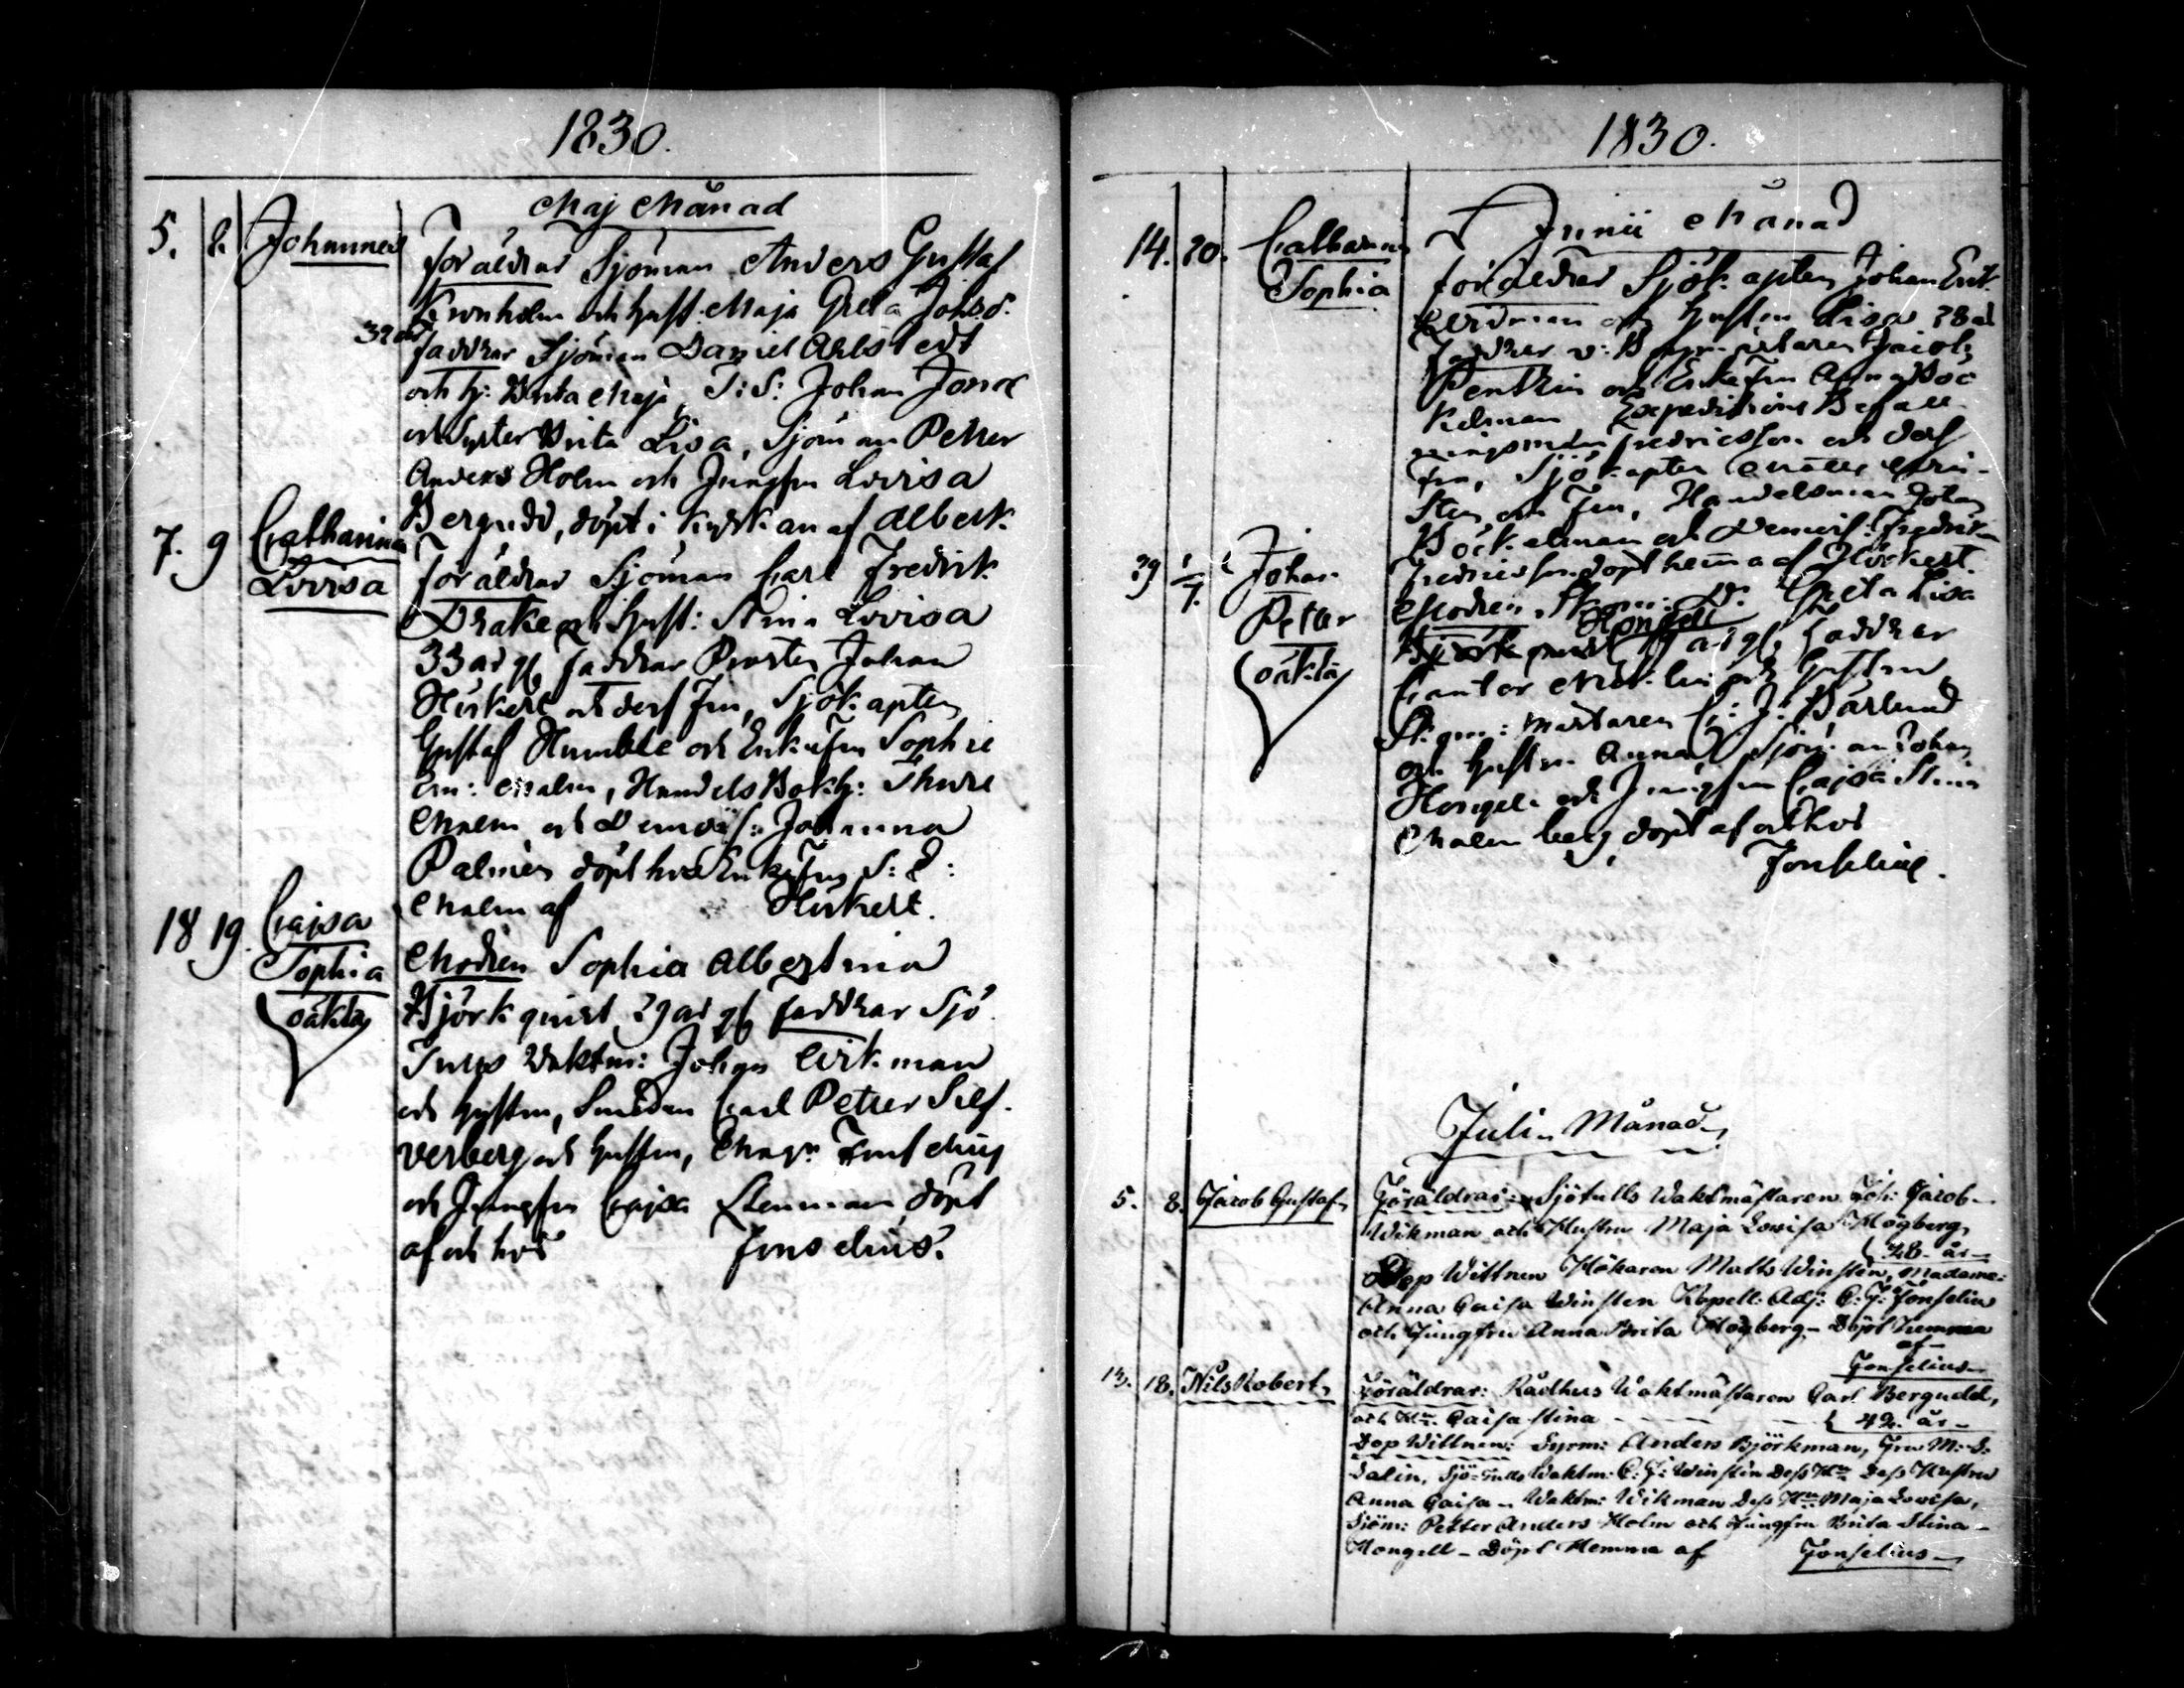 1830.
Maj Månad
5. 8. Johannes
Föräldrar Sjöman Anders Gustaf
Kronholm och Hust. Maja Greta Johsd.
32 år faddrar Sjöman Daniel Ahlstedt
och H: Brita Maja, S:S: Johan Jons
och Syster Brita Lisa, Sjöman Petter
Anders Holm och Jungfru Lovisa
Bergudd, döpt i Kyrkan af Alberk.
7. 9 Catharina
Lovisa
Föräldrar Sjöman Carl Fredrik
Drake och Hust: Stina Lovisa
33 år gl faddrar Prosten Johan
Hirkert och dess Fru, Sjökapten
Gustaf Humble och Enkefru Sophie
Malm, Handels Bokh: Thure
Malm och Demois: Johanna
Palmén döpt hos Enkefru S:
Malm af Hirkert.
18 19. Cajsa
Sophia
oäkta
Modren Sophia Albertina
Björkqvist 29 år gl faddrar Sjö
Tulls Vaktm: Johan Wikman
och Hustru, Smeden Carl Petter Silf-
verberg och Hustru, Jonselius
och Jungfru Cajsa Stenman, döpt
af och hos Jonselius.
1830.
Junii Månad
14. 20. Catharina
Sophia
föräldrar Sjökapten Johan Erik
och Hustru Lisa 28 år
Faddrar Jacob
och Enkefru Anna Böc
kelman Expeditions Befall
ningsman Fredricsson och dess
Fru, Sjökapten
Sten och Fru, Handelsman Johan
Böckelman och Demois: Fredrika
Fredricsson döpt hemma af Hirkert.
29 1/7. Johan
Petter
oäkta
Modren Greta Lisa
Hongell
Björkqvist år gl, Faddrar
Cantor och Hustru,
mästaren C: J: Barlund
och Hustru Anna Sjöman Johan
Hongell och Jungfru Cajsa Stina
Malmberg, döpt af och hos
Jonselius.
Julii Månad
5. 8. Jacob Gustaf
Föräldrar: Sjötulls Waktmästaren Joh: Jacob
Wikman och Hustru Maja Lovisa Högberg
48 år
Dop Wittnen Hökaren Matts Winsten, Madame:
Anna Caisa Winsten Kapell: Adj: C: G: Jonselius
och Jungfru Anna Brita Högberg – Döpt hemma
af –
Jonselius
13. 18. Nils Robert
Föräldrar: Rådhus Waktmästaren Carl Bergudd,
och Hu: Caisa Stina 42 år
Dop Wittnen: Styrm: Anders Björkman, Fru M: S:
Dalin, Sjö-Tulls Waktm: C: G: Winsten Dess Hu Dess Hustru
Anna Caisa – Waktm: Wikman Dess Hu Maja Lovisa,
Sjöm: Petter Anders Holm och Jungfru Brita Stina
Hongell – Döpt Hemma af Jonselius